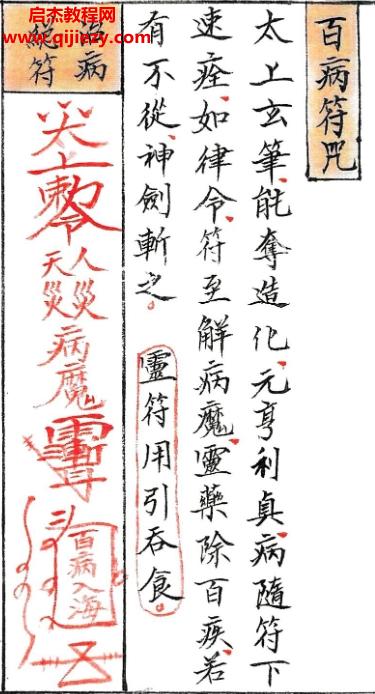 百病符咒
太上玄筆能奪造化元亨利真病隨符下
速痊如律令符至解病魔靈藥除百疾若
有不從神劍斬之
靈符用引吞食
启杰教程网
www.qijizy.com
病
絕符
敕令
天人
災災
病魔
百病入海